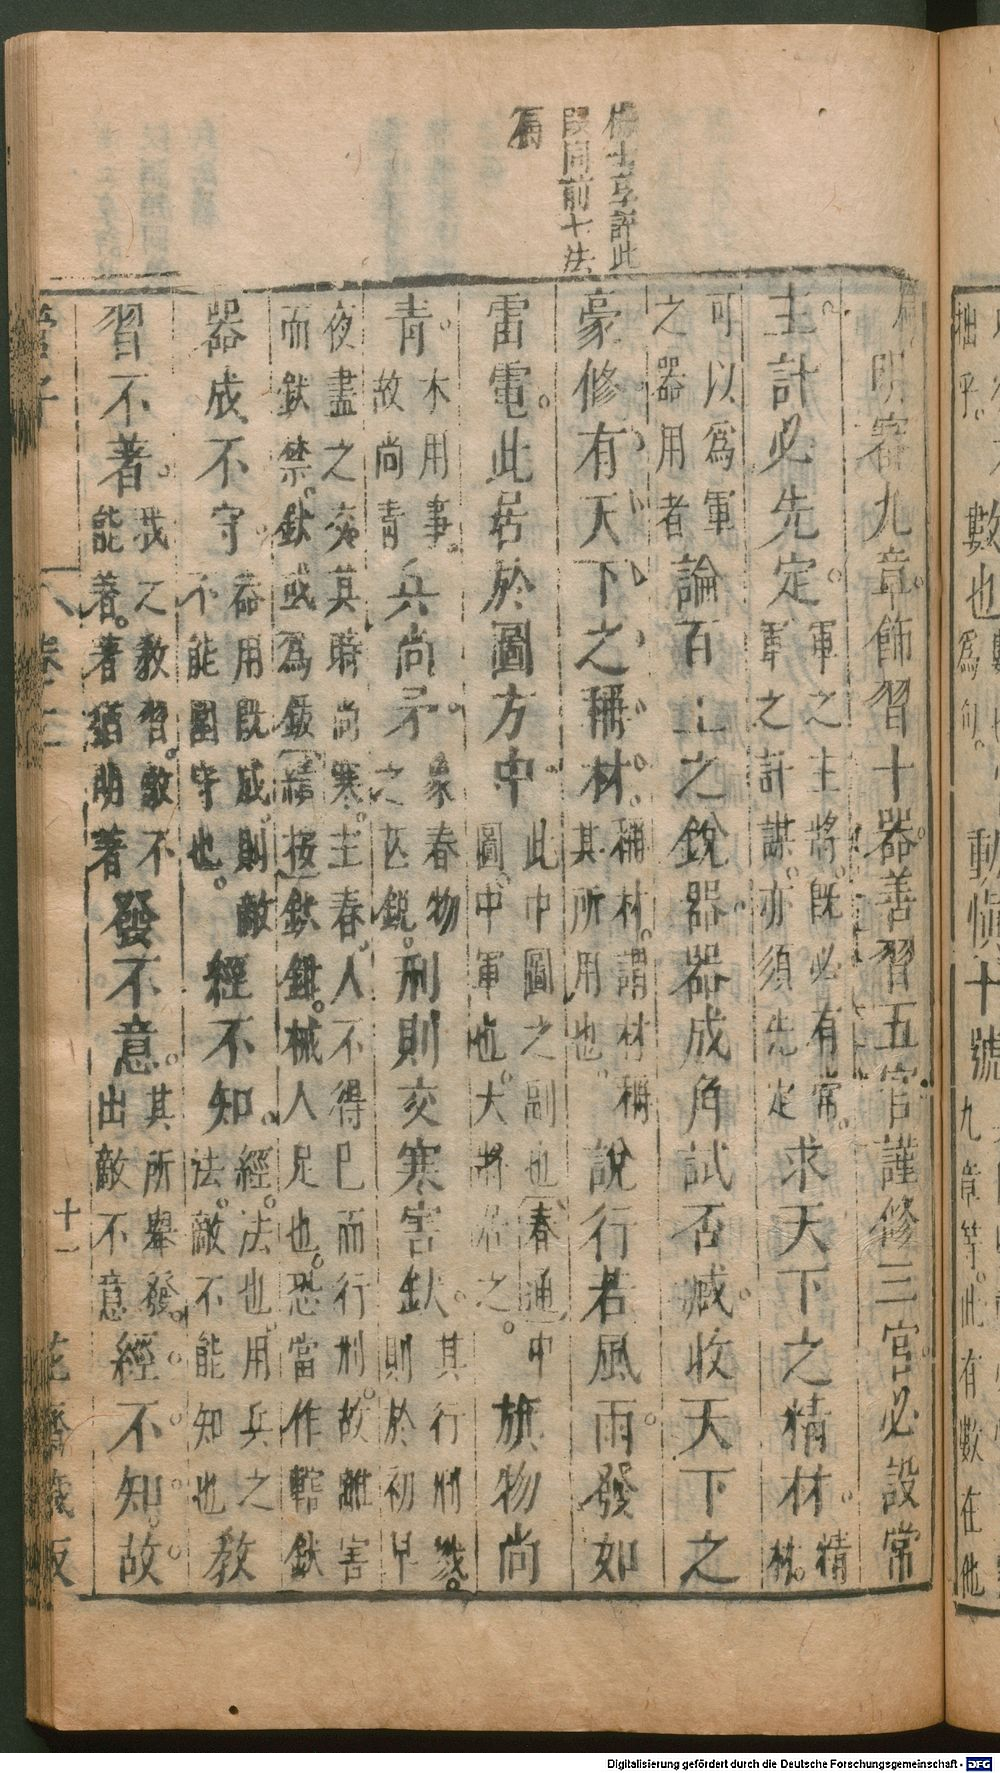 梅士享評此
段同前七法
篇
明審九章飾習十器善習五官謹修三官必設常
主計必先定軍之主將既必有常軍之計謀亦須先定求天下之精材精材
可以爲軍之器用者論百工之銳器器成角試否臧收天下之
豪修有天下之稱材稱材謂材稱其所用也說行若風雨發如
雷電此居於圖方中此中圖之副也圖中軍也大將居之春通中旗物尚
青木用事故尚青兵尚矛象春物之芒銳刑則交寒害釱其行刑戮則於初旦
夜盡之交其時尚寒主春人不得已而行刑故離害而釱禁釱或爲鈹結按釱鉗械人足也恐當作轄釱
器成不守器用既成則敵不能圉守也經不知經法也用兵之法敵不能知也教
習不著我之教習敵不能著著猶明著發不意其所舉發出敵不意經不知故
管子
卷二
十一
花齋藏板
拙乎
數也
爲句
動慎十號
九章等此有數在他
Digitalisierung gefördert durch die Deutsche Forschungsgemeinschaft - DFG